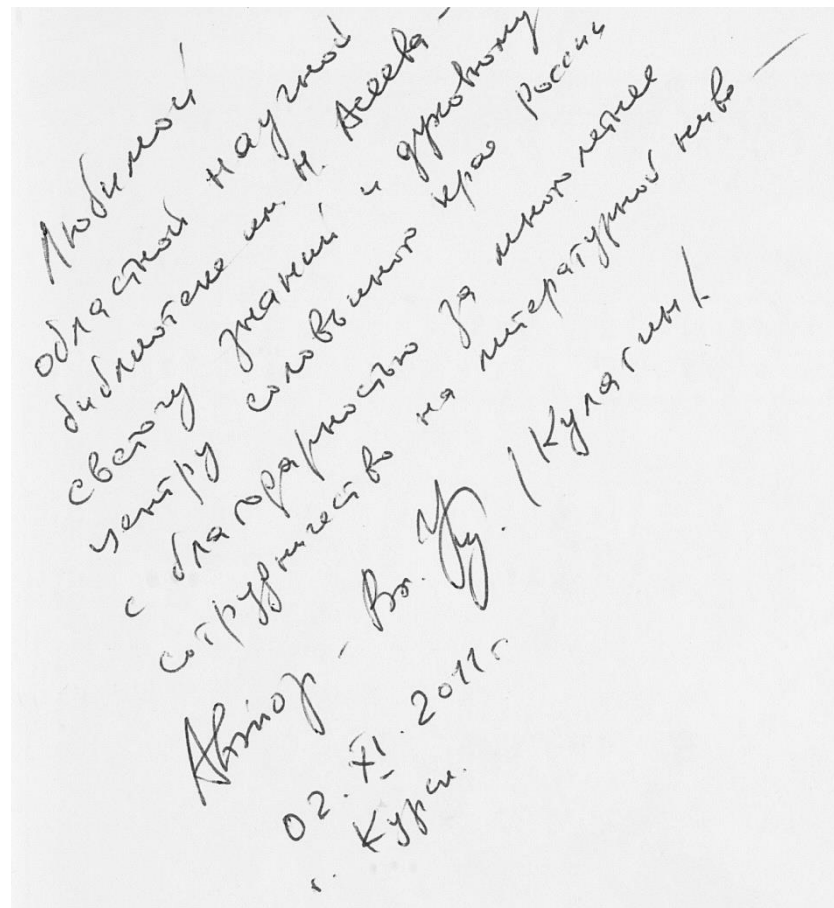 Любимой
областной научной
библиотеке им. Н. Асеева –
светочу знаний и духовному
центру соловьиного края России
с благодарностью за многолетнее
сотрудничество на литературной ниве –
Автор – Вл. /Кулагин/
02. XI. 2011 г.
г. Курск.